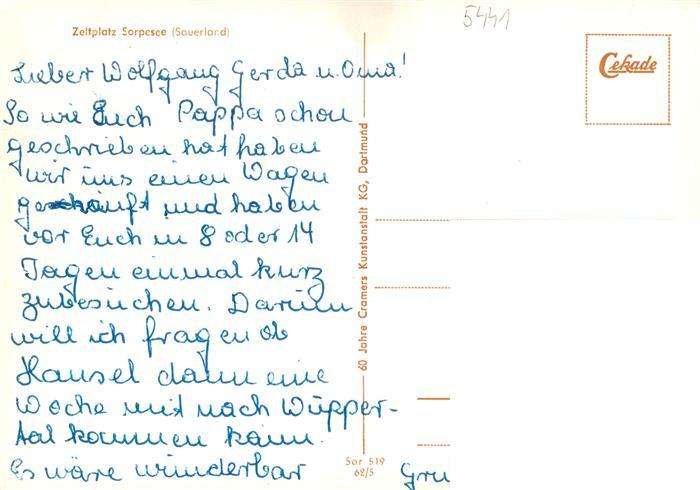 5441
Zeltplatz Sorpesee (Sauerland)
Cekade
Lieber Wolfgang Gerda u. Oma!
So wie Euch Pappa schon
geschrieben hat haben
wir uns einen Wagen
gekauft und haben
vor Euch in 8 oder 14
Tagen einmal kurz
zubesuchen. Darum
will ich fragen ob
Hansel dann eine
Woche mit nach Wupper-
tal kommen kann.
Es wäre wunderbar
Gru
60 Jahre Cramers Kunstanstalt KG, Dortmund
Sor 519
62/5